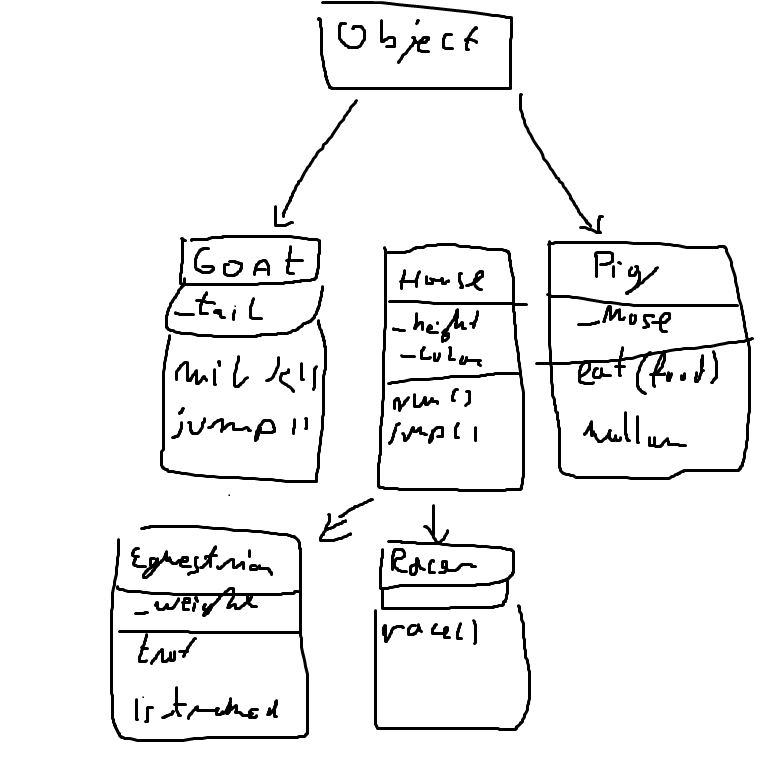 Object
Goat
_tail
milk()
jump()
Horse
_height
_color
run()
jump()
Pig
_nose
eat(food)
Equestrian
_weight
trot
Racer
race()